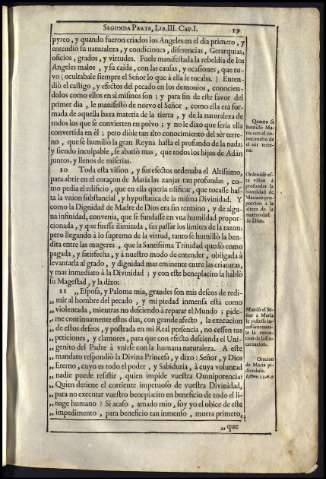 SEGUNDA PARTE, LIB. III. CAP. I. 19
pyreo, y quando fueron criados los Angeles en el dia primero, y
entendió su naturaleza, y condiciones, diferencias, Gerarquias,
oficios, grados, y virtudes. Fuele manifestada la rebeldia de los
Angeles malos, y su caida, con las causas, y ocasiones, que tu-
vo; ocultabale siempre el Señor lo que à ella le tocaba. Enten-
dió el castigo, y efectos del pecado en los demonios, conocien-
dolos como ellos en sí mismos son; y para fin de este favor del
primer dia, le manifestó de nuevo el Señor, como ella era for-
mada de aquella baxa materia de la tierra, y de la naturaleza de
todos los que se convierten en polvo; y no le dixo que seria ella
convertida en él; pero dióle tan alto conocimiento del sér terre-
no, que se humilló la gran Reyna hasta el profundo de la nada;
y siendo inculpable, se abatió mas, que todos los hijos de Adán
juntos, y llenos de miserias.
10 Toda esta vision, y sus efectos ordenaba el Altissimo,
para abrir en el corazon de Maria las zanjas tan profundas, co-
mo pedia el edificio, que en ella queria edificar, que tocasse has-
ta la union substancial, y hypostatica de la misma Divinidad. Y
como la Dignidad de Madre de Dios era sin termino, y de algu-
na infinidad, convenia, que se fundasse en una humildad propor-
cionada, y que fuesse ilimitada, sin passar los limites de la razon;
pero llegando à lo supremo de la virtud, tanto se humilló la ben-
dita entre las mugeres, que la Santissima Trinidad quedó como
pagada, y satisfecha, y à nuestro modo de entender, obligada à
levantarla al grado, y dignidad mas eminente entre las criaturas,
y mas inmediato à la Divinidad; y con este beneplacito la habló
su Magestad, y la dixo:
11 „ Esposa, y Paloma mia, grandes son mis deseos de redi-
„ mir al hombre del pecado, y mi piedad inmensa está como
„ violentada, mientras no desciendo à reparar el Mundo; pide-
„ me continuamente estos dias, con grande afecto, la execucion
„ de estos deseos, y postrada en mi Real presencia, no cessen tus
„ peticiones, y clamores, para que con efecto descienda el Uni-
„ genito del Padre à unirse con la humana naturaleza. A este
mandato respondió la Divina Princesa, y dixo: Señor, y Dios
„ Eterno, cuyo es todo el poder, y Sabiduria, à cuya voluntad
„ nadie puede resistir, quien impide vuestra Omnipotencia?
„ Quien detiene el corriente impetuoso de vuestra Divinidad,
„ para no executar vuestro beneplacito en beneficio de todo el li-
„ nage humano? Si acaso, amado mio, soy yo el obice de este
„ impedimento, para beneficio tan inmenso, muera primero,
„ que
Quanto se
humilló Ma-
ria